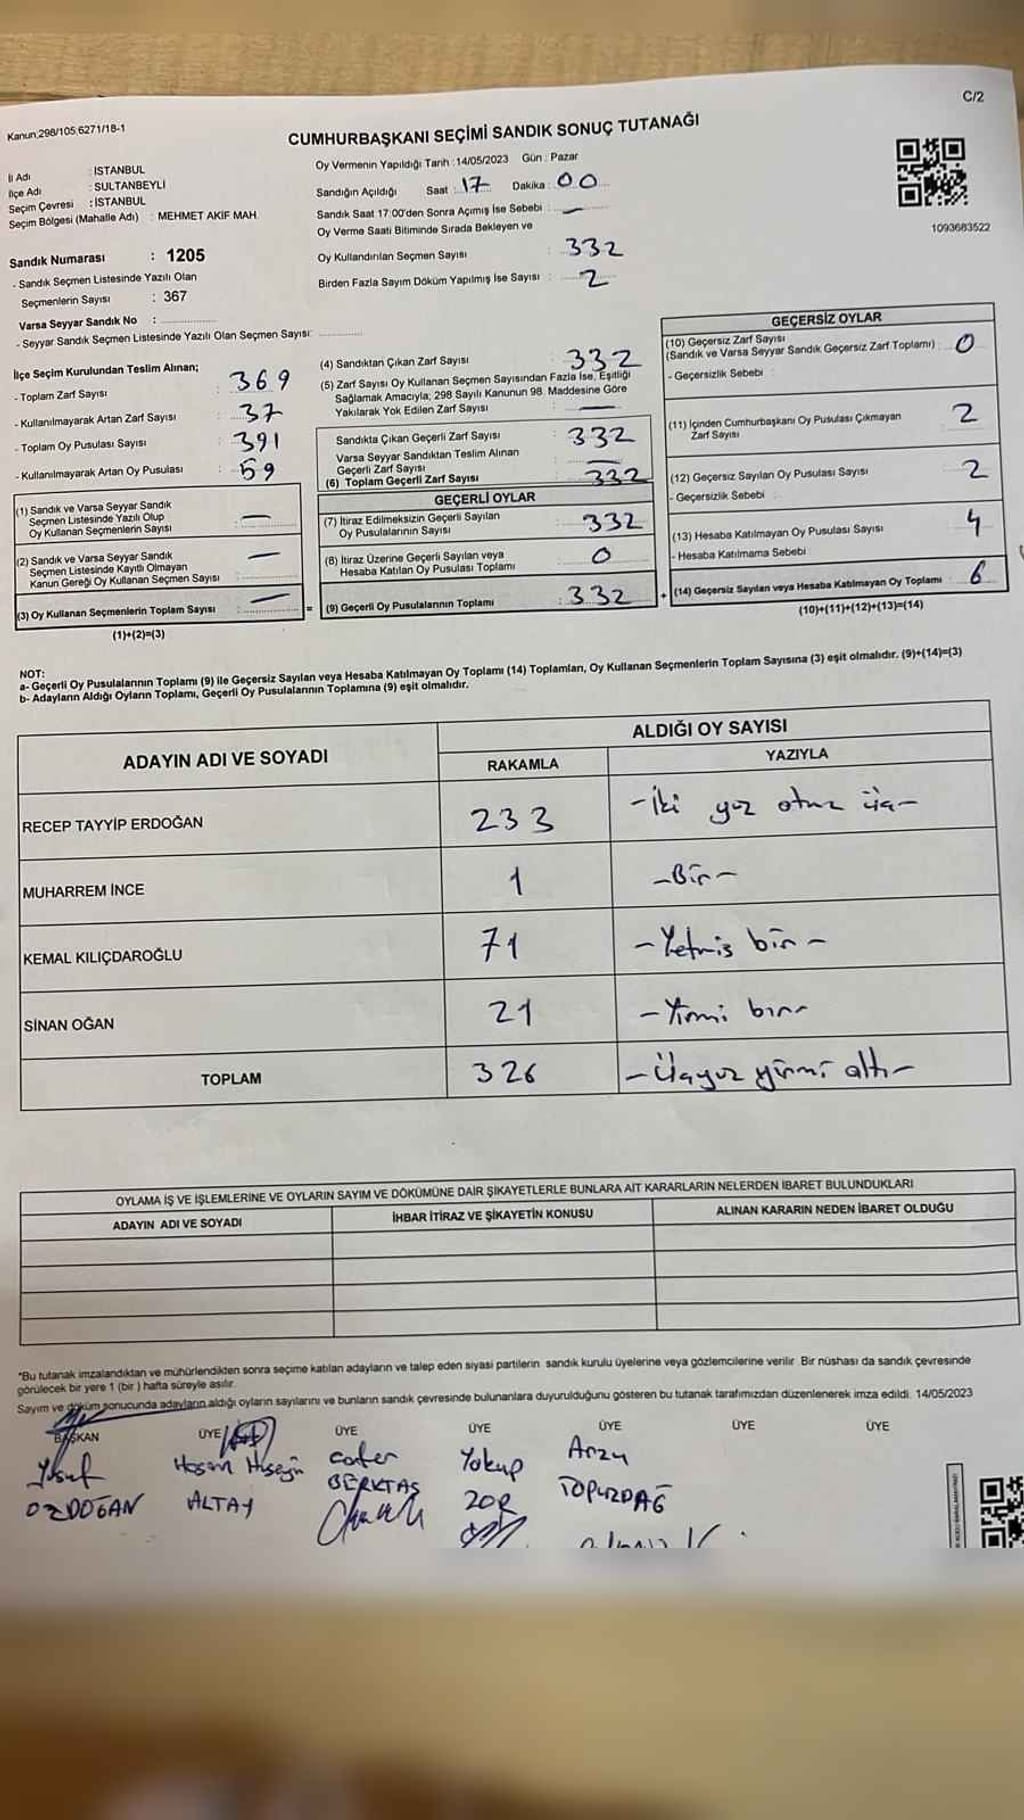 C/2
Kanun,298/105,6271/18-1
CUMHURBAŞKANI SEÇİMİ SANDIK SONUÇ TUTANAĞI
İl Adı : İSTANBUL
İlçe Adı : SULTANBEYLİ
Seçim Çevresi : İSTANBUL
Seçim Bölgesi (Mahalle Adı) : MEHMET AKİF MAH.
Sandık Numarası : 1205
- Sandık Seçmen Listesinde Yazılı Olan
Seçmenlerin Sayısı : 367
Varsa Seyyar Sandık No :
- Seyyar Sandık Seçmen Listesinde Yazılı Olan Seçmen Sayısı:
Oy Vermenin Yapıldığı Tarih : 14/05/2023 Gün : Pazar
Sandığın Açıldığı Saat : 17 Dakika : 00
Sandık Saat 17:00'den Sonra Açımış İse Sebebi : —
Oy Verme Saati Bitiminde Sırada Bekleyen ve
Oy Kullandırılan Seçmen Sayısı : 332
Birden Fazla Sayım Döküm Yapılmış İse Sayısı : 2
1093683522
İlçe Seçim Kurulundan Teslim Alınan;
- Toplam Zarf Sayısı : 369
- Kullanılmayarak Artan Zarf Sayısı : 37
- Toplam Oy Pusulası Sayısı : 391
- Kullanılmayarak Artan Oy Pusulası : 59
(1) Sandık ve Varsa Seyyar Sandık
Seçmen Listesinde Yazılı Olup
Oy Kullanan Seçmenlerin Sayısı : —
(2) Sandık ve Varsa Seyyar Sandık
Seçmen Listesinde Kayıtlı Olmayan
Kanun Gereği Oy Kullanan Seçmen Sayısı : —
(3) Oy Kullanan Seçmenlerin Toplam Sayısı : — =
(1)+(2)=(3)
(4) Sandıktan Çıkan Zarf Sayısı : 332
(5) Zarf Sayısı Oy Kullanan Seçmen Sayısından Fazla İse, Eşitliği
Sağlamak Amacıyla; 298 Sayılı Kanunun 98. Maddesine Göre
Yakılarak Yok Edilen Zarf Sayısı : —
Sandıkta Çıkan Geçerli Zarf Sayısı : 332
Varsa Seyyar Sandıktan Teslim Alınan
Geçerli Zarf Sayısı : —
(6) Toplam Geçerli Zarf Sayısı : 332
GEÇERLİ OYLAR
(7) İtiraz Edilmeksizin Geçerli Sayılan
Oy Pusulalarının Sayısı : 332
(8) İtiraz Üzerine Geçerli Sayılan veya
Hesaba Katılan Oy Pusulası Toplamı : 0
(9) Geçerli Oy Pusulalarının Toplamı : 332 +
GEÇERSİZ OYLAR
(10) Geçersiz Zarf Sayısı
(Sandık ve Varsa Seyyar Sandık Geçersiz Zarf Toplamı) : 0
- Geçersizlik Sebebi :
(11) İçinden Cumhurbaşkanı Oy Pusulası Çıkmayan
Zarf Sayısı 2
(12) Geçersiz Sayılan Oy Pusulası Sayısı 2
- Geçersizlik Sebebi :
(13) Hesaba Katılmayan Oy Pusulası Sayısı 4
- Hesaba Katılmama Sebebi
(14) Geçersiz Sayılan veya Hesaba Katılmayan Oy Toplamı 6
(10)+(11)+(12)+(13)=(14)
NOT:
a- Geçerli Oy Pusulalarının Toplamı (9) ile Geçersiz Sayılan veya Hesaba Katılmayan Oy Toplamı (14) Toplamları, Oy Kullanan Seçmenlerin Toplam Sayısına (3) eşit olmalıdır. (9)+(14)=(3)
b- Adayların Aldığı Oyların Toplamı, Geçerli Oy Pusulalarının Toplamına (9) eşit olmalıdır.
ADAYIN ADI VE SOYADI ALDIĞI OY SAYISI
RAKAMLA YAZIYLA
RECEP TAYYİP ERDOĞAN 233 -İki yüz otuz üç-
MUHARREM İNCE 1 -Bir-
KEMAL KILIÇDAROĞLU 71 -Yetmiş bir-
SİNAN OĞAN 21 -Yirmi bir-
TOPLAM 326 -Üçyüz yirmi altı-
OYLAMA İŞ VE İŞLEMLERİNE VE OYLARIN SAYIM VE DÖKÜMÜNE DAİR ŞİKAYETLERLE BUNLARA AİT KARARLARIN NELERDEN İBARET BULUNDUKLARI
ADAYIN ADI VE SOYADI İHBAR İTİRAZ VE ŞİKAYETİN KONUSU ALINAN KARARIN NEDEN İBARET OLDUĞU
*Bu tutanak imzalandıktan ve mühürlendikten sonra seçime katılan adayların ve talep eden siyasi partilerin sandık kurulu üyelerine veya gözlemcilerine verilir. Bir nüshası da sandık çevresinde
görülecek bir yere 1 (bir) hafta süreyle asılır.
Sayım ve döküm sonucunda adayların aldığı oyların sayılarını ve bunların sandık çevresinde bulunanlara duyurulduğunu gösteren bu tutanak tarafımızdan düzenlenerek imza edildi. 14/05/2023
BAŞKAN ÜYE ÜYE ÜYE ÜYE ÜYE ÜYE
Yusuf Hasan Hüseyin Cafer Yakup Arzu
ÖZDOĞAN ALTAY BERKTAŞ ZOR TOPUZDAĞ